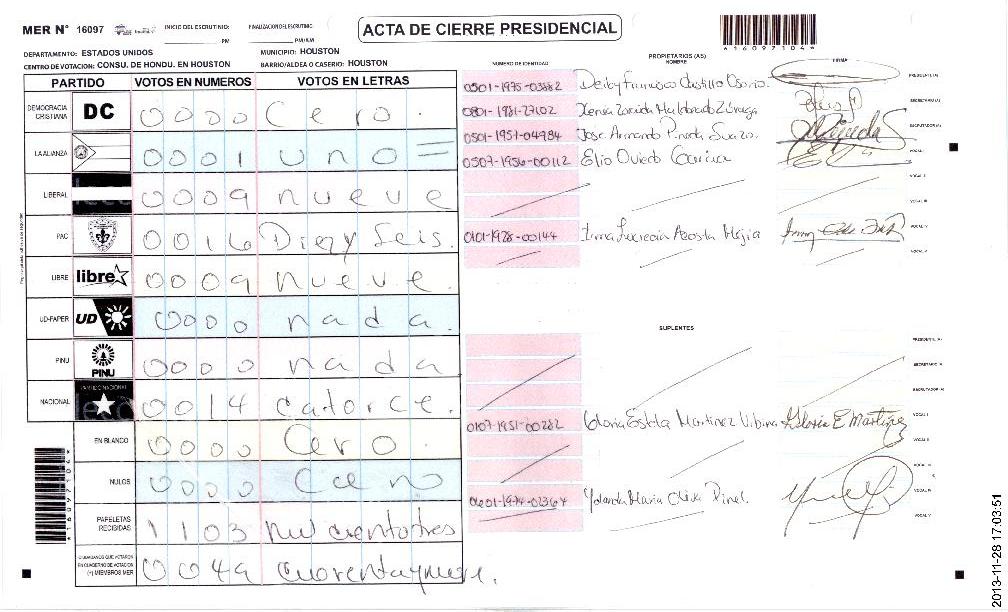 MER N° 16097
INICIO DEL ESCRUTINIO: PM
FINALIZACION DEL ESCRUTINIO: PM/AM
ACTA DE CIERRE PRESIDENCIAL
*16097104*
DEPARTAMENTO: ESTADOS UNIDOS
MUNICIPIO: HOUSTON
CENTRO DE VOTACION: CONSU. DE HONDU. EN HOUSTON
BARRIO/ALDEA O CASERIO: HOUSTON
PARTIDO VOTOS EN NUMEROS VOTOS EN LETRAS
DEMOCRACIA CRISTIANA DC 0000 Cero.
LA ALIANZA 0001 uno =
LIBERAL 0009 nueve
PAC 0016 Diez y Seis.
LIBRE libre 0009 nueve.
UD-FAPER UD 0000 nada.
PINU PINU 0000 nada
NACIONAL PARTIDO NACIONAL 0014 catorce.
EN BLANCO 0000 Cero.
NULOS 0000 Cero
PAPELETAS RECIBIDAS 1103 mil cientotres
CIUDADANOS QUE VOTARON EN CUADERNO DE VOTACION (+) MIEMBROS MER 0049 cuarentaynueve.
*16097104*
NUMERO DE IDENTIDAD
PROPIETARIOS (AS)
NOMBRE
FIRMA
0501-1975-03882 Deiby Francisco Castillo Osorio PRESIDENTE (A)
0801-1981-27102 Xenia Zoraida Maldonado Zúniga SECRETARIO (A)
0501-1951-04984 Jose Armando Pineda Suazo. ESCRUTADOR (A)
0507-1956-00112 Elio Oviedo VOCAL I
VOCAL II
VOCAL III
0101-1978-00144 Irma Lucrecia Acosta Mejia VOCAL IV
VOCAL V
SUPLENTES
PRESIDENTE (A)
SECRETARIO (A)
ESCRUTADOR (A)
0107-1951-00282 Gloria Estela Martinez Urbina Gloria E Martinez VOCAL I
VOCAL II
VOCAL III
0601-1974-01364 Yolanda Maria Oliva Pinel VOCAL IV
VOCAL V
2013-11-28 17:03:51